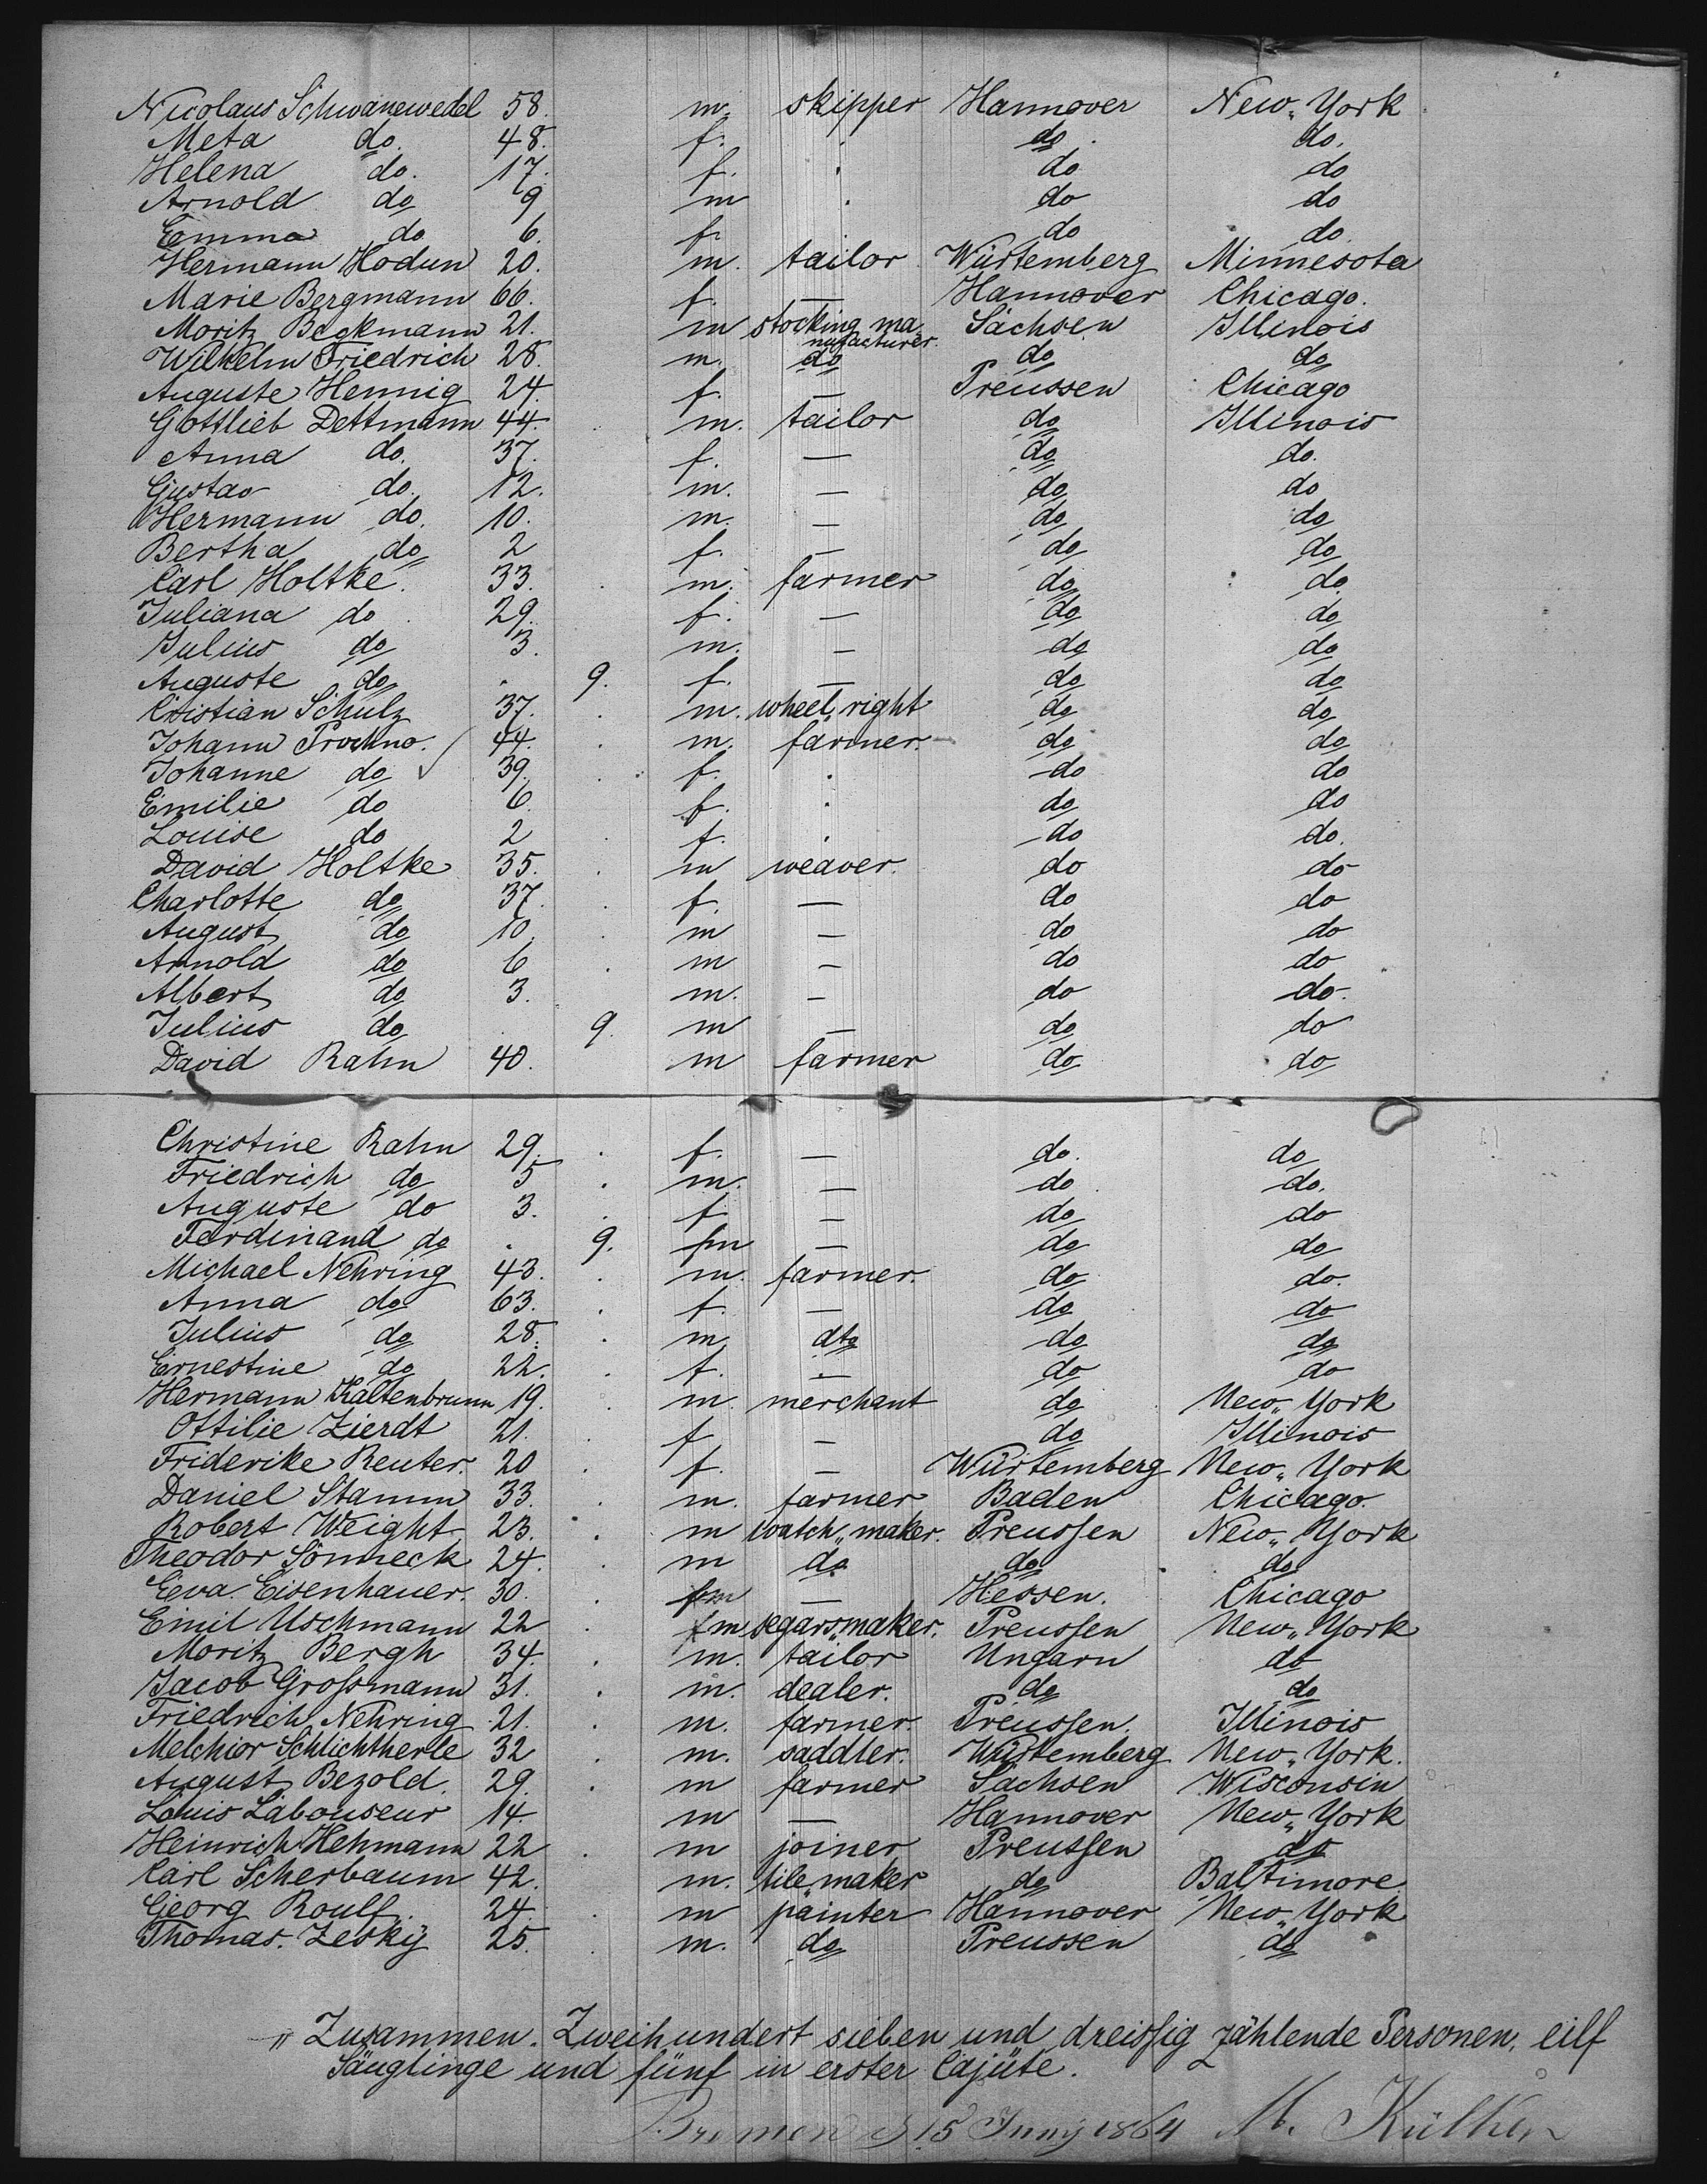 Nicolaus Schwanewedel 58. m. skipper Hannover New-York
Meta do. 48. f. do. do.
Helena do. 17. f. do do
Arnold do 9 m do do
Emma do 6. f. do do.
Hermann Hodum 20. m. tailor Würtemberg Minnesota
Marie Bergmann 66. f. — Hannover Chicago.
Moritz Beckmann 21. m stocking ma Sachsen Illinois
nufacturer.
Wilhelm Friedrich 28. m. do do do
Auguste Hennig 24. f. — Preussen Chicago
Gottlieb Dettmann 44. m. tailor do Illinois
Anna do. 37. f. — do do.
Gustav do. 12. m. — do do
Hermann do. 10. m. — do do
Bertha do 2 f. — do do
Carl Holtke. 33. m. farmer do do.
Juliana do 29. f. — do do
Julius do 3. m. — do do
Auguste do . 9. f. — do do
Cristian Schulz 37. m. wheel"right do do
Johann Prochno. 44. m. farmer. do do
Johanne do 39. f. . do do
Emilie do 6. f. . do do
Louise do 2 f. . do do.
David Holtke 35. m weaver. do do
Charlotte do 37. f. — do do
August do 10. m — do do
Arnold do 6 m — do do
Albert do 3. m. — do do.
Julius do . 9. m — do do
David Rahn 40. m farmer do do
Christine Rahn 29. f. — do. do
Friedrich do 5 m. — do do.
Auguste do 3. f. — do do
Ferdinand do . 9. fm — do do
Michael Nehring 43. m. farmer. do do.
Anna do 63. f. — do do
Julius do 28. m. dto do do
Ernestine do 22. f. — do do
Hermann Kaltenbrunn 19. m. merchant do New"York
Ottilie Zierdt 21. f — do Illinois
Friderike Reuter. 20 f. — Würtemberg New"York
Daniel Stamm 33. m. farmer Baden Chicago.
Robert Weight 23. m watch"maker. Preussen New"York
Theodor Sonneck 24. m do do do
Eva Eisenhauer. 30. fm — Hessen. Chicago
Emil Uschmann 22 fm segars"maker. Preussen New"York
Moritz Bergh 34. m. tailor Ungarn do
Jacob Grossmann 31. m. dealer. do do
Friedrich Nehring 21. m. farmer. Preussen. Illinois
Melchior Schlichtherle 32 m. saddler. Würtemberg New"York.
August Bezold. 29. m farmer Sachsen Wisconsin
Louis Labouseur 14. m — Hannover New"York
Heinrich Hehmann 22 m joiner Preussen do
Carl Scherbaum 42. m. tile"maker do Baltimore
Georg Roulf. 24 m painter Hannover New"York
Thomas. Zesky 25. m. do Preussen do
" Zusammen. Zweihundert sieben und dreissig zählende Personen, eilf
Säuglinge und fünf in erster Cajüte.
Bremen d 15 Juny 1864 M. Külken